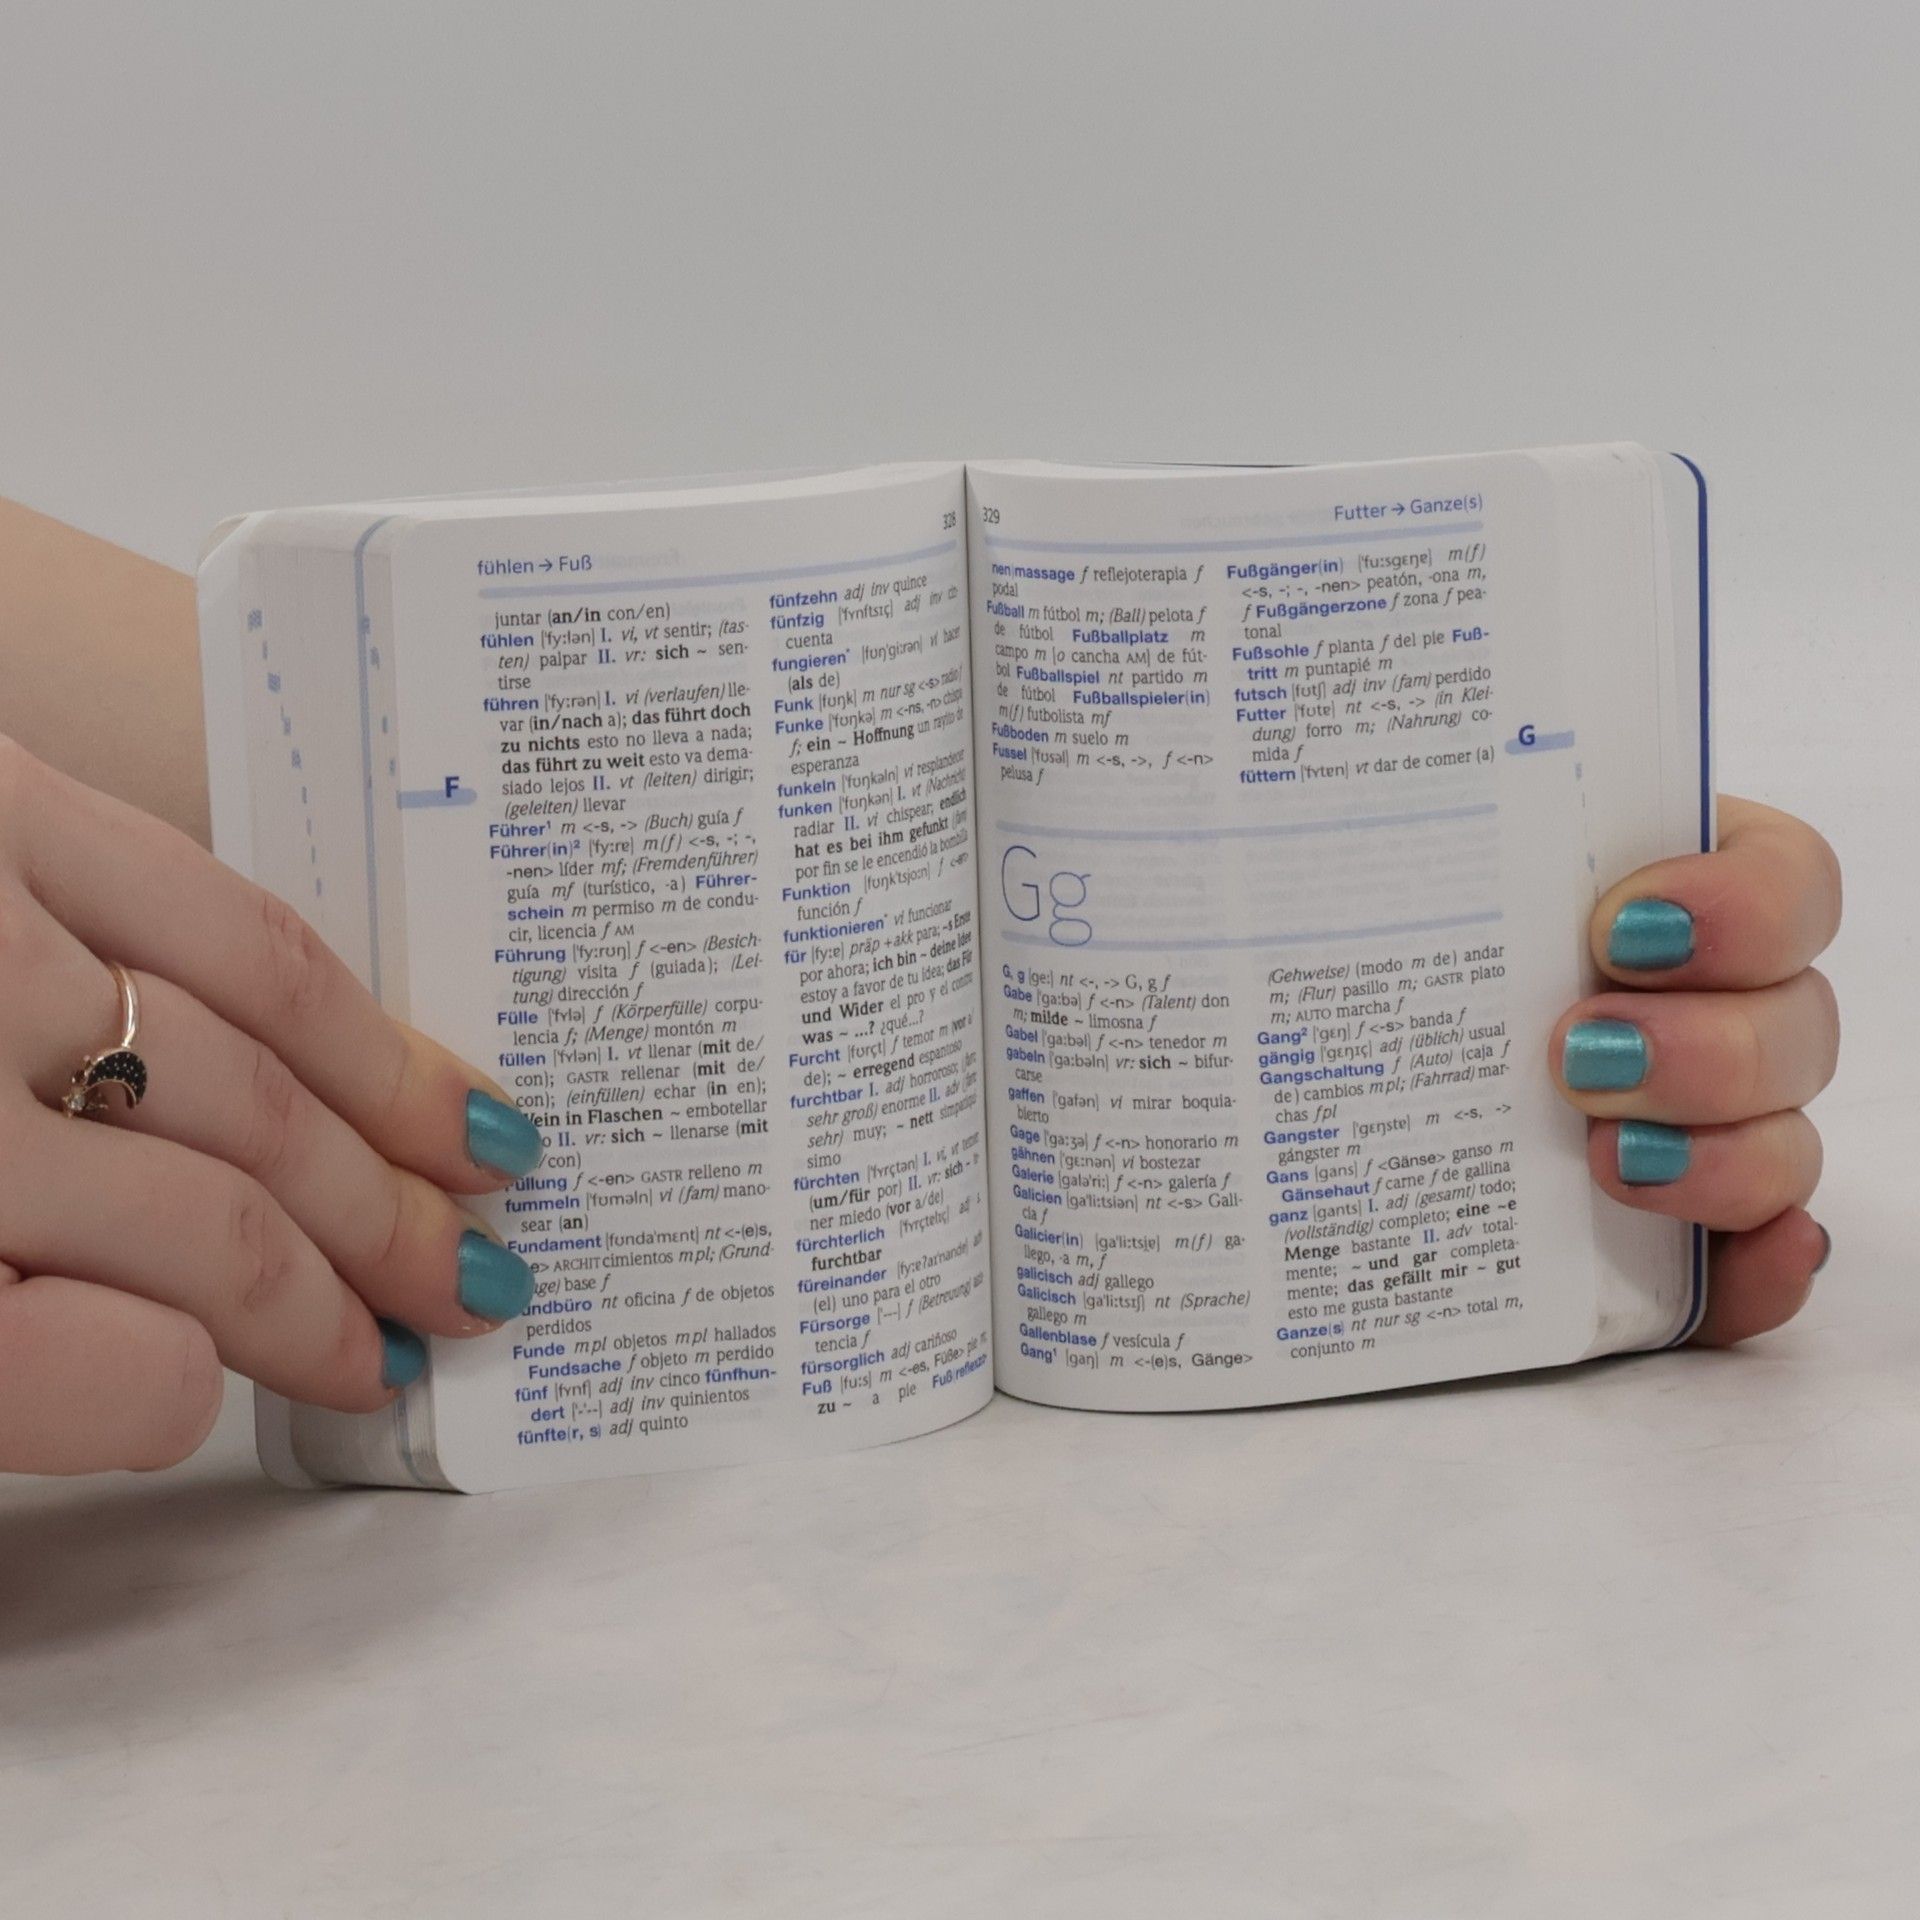 328
fühlen → Fuß
juntar (an/in con/en)
fühlen ['fy:lən] I. vi, vt sentir; (tas-
ten) palpar II. vr: sich ~ sen-
tirse
führen ['fy:rən] I. vi (verlaufen) lle-
var (in/nach a); das führt doch
zu nichts esto no lleva a nada;
das führt zu weit esto va dema-
siado lejos II. vt (leiten) dirigir;
(geleiten) llevar
F
Führer¹ m <-s, -> (Buch) guía f
Führer(in)² ['fy:rɐ] m(f) <-s, -; -,
-nen> líder mf; (Fremdenführer)
guía mf (turístico, -a) Führer-
schein m permiso m de condu-
cir, licencia f AM
Führung ['fy:rʊŋ] f <-en> (Besich-
tigung) visita f (guiada); (Lei-
tung) dirección f
Fülle ['fʏlə] f (Körperfülle) corpu-
lencia f; (Menge) montón m
füllen ['fʏlən] I. vt llenar (mit de/
con); GASTR rellenar (mit de/
con); (einfüllen) echar (in en);
in Flaschen ~ embotellar
II. vr: sich ~ llenarse (mit
/con)
f <-en> GASTR relleno m
fummeln ['fʊməln] vi (fam) mano-
sear (an)
Fundament [fʊnda'mɛnt] nt <-(e)s,
ARCHIT cimientos mpl; (Grund-
base f
nt oficina f de objetos
perdidos
Funde mpl objetos mpl hallados
Fundsache f objeto m perdido
fünf [fʏnf] adj inv cinco fünfhun-
dert ['-'--] adj inv quinientos
fünfte(r, s) adj quinto
fünfzehn adj inv quince
fünfzig ['fʏnftsɪç] adj inv cin
cuenta
fungieren* [fʊŋ'gi:rən] vi hacer
(als de)
Funk [fʊŋk] m nur sg <-s> radio f
Funke ['fʊŋkə] m <-ns, -n> chispa
f; ein ~ Hoffnung un rayito de
esperanza
funkeln ['fʊŋkəln] vi resplandecer
funken ['fʊŋkən] I. vt (Nachricht)
radiar II. vi chispear; endlich
hat es bei ihm gefunkt (fam)
por fin se le encendió la bombilla
Funktion [fʊŋk'tsjo:n] f <-en>
función f
funktionieren* vi funcionar
für [fy:ɐ] präp +akk para; ~s Erste
por ahora; ich bin ~ deine Idee
estoy a favor de tu idea; das Für
und Wider el pro y el contra
was ~ ...? ¿qué...?
Furcht [fʊrçt] f temor m (vor a/
de); ~ erregend espantoso
furchtbar I. adj horroroso; (fam:
sehr groß) enorme II. adv (fam:
sehr) muy; ~ nett simpatiquí
simo
fürchten ['fʏrçtən] I. vi, vt temer
(um/für por) II. vr: sich ~ te
ner miedo (vor a/de)
fürchterlich ['fʏrçtɐlɪç] adj s.
furchtbar
füreinander [fy:ɐʔaɪ'nandɐ] adv
(el) uno para el otro
Fürsorge ['---] f (Betreuung) asis
tencia f
fürsorglich adj cariñoso
Fuß [fu:s] m <-es, Füße> pie m;
zu ~ a pie Fuß|reflexzo
329
Futter → Ganze(s)
nen|massage f reflejoterapia f
podal
Fußball m fútbol m; (Ball) pelota f
de fútbol Fußballplatz m
campo m [o cancha AM] de fút-
bol Fußballspiel nt partido m
de fútbol Fußballspieler(in)
m(f) futbolista mf
Fußboden m suelo m
Fussel ['fʊsəl] m <-s, ->, f <-n>
pelusa f
Fußgänger(in) ['fu:sgɛŋɐ] m(f)
<-s, -; -, -nen> peatón, -ona m,
f Fußgängerzone f zona f pea-
tonal
Fußsohle f planta f del pie Fuß-
tritt m puntapié m
futsch [fʊtʃ] adj inv (fam) perdido
Futter ['fʊtɐ] nt <-s, -> (in Klei-
dung) forro m; (Nahrung) co-
mida f
füttern ['fʏtɐn] vt dar de comer (a)
G
Gg
G, g [ge:] nt <-, -> G, g f
Gabe ['ga:bə] f <-n> (Talent) don
m; milde ~ limosna f
Gabel ['ga:bəl] f <-n> tenedor m
gabeln ['ga:bəln] vr: sich ~ bifur-
carse
gaffen ['gafən] vi mirar boquia-
bierto
Gage ['ga:ʒə] f <-n> honorario m
gähnen ['gɛ:nən] vi bostezar
Galerie [galə'ri:] f <-n> galería f
Galicien [ga'li:tsiən] nt <-s> Gali-
cia f
Galicier(in) [ga'li:tsiɐ] m(f) ga-
llego, -a m, f
galicisch adj gallego
Galicisch [ga'li:tsɪʃ] nt (Sprache)
gallego m
Gallenblase f vesícula f
Gang¹ [gaŋ] m <-(e)s, Gänge>
(Gehweise) (modo m de) andar
m; (Flur) pasillo m; GASTR plato
m; AUTO marcha f
Gang² ['gɛŋ] f <-s> banda f
gängig ['gɛŋɪç] adj (üblich) usual
Gangschaltung f (Auto) (caja f
de) cambios mpl; (Fahrrad) mar-
chas fpl
Gangster ['gɛŋstɐ] m <-s, ->
gángster m
Gans [gans] f <Gänse> ganso m
Gänsehaut f carne f de gallina
ganz [gants] I. adj (gesamt) todo;
(vollständig) completo; eine ~e
Menge bastante II. adv total-
mente; ~ und gar completa-
mente; das gefällt mir ~ gut
esto me gusta bastante
Ganze(s) nt nur sg <-n> total m,
conjunto m